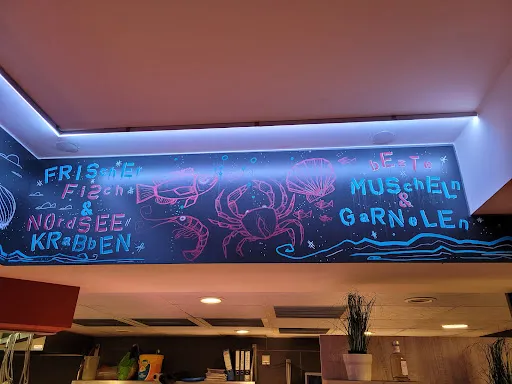 FRISCHER
FISCH
&
NORDSEE
KRABBEN
BESTE
MUSCHELN
&
GARNELEN